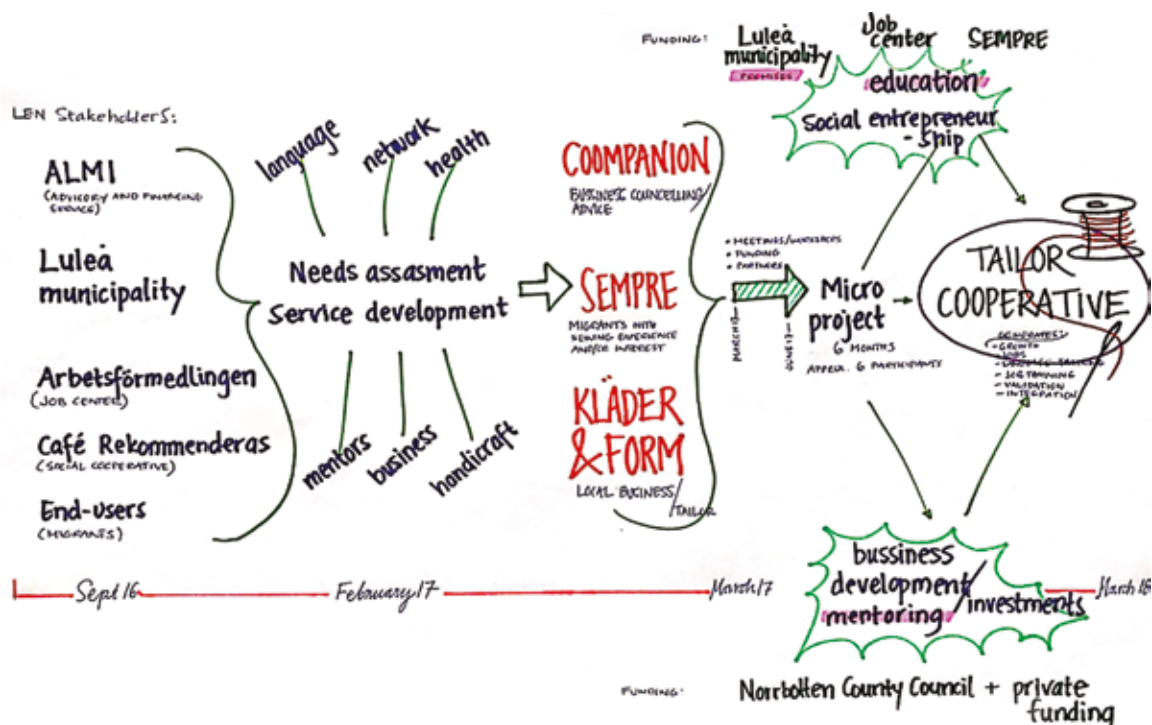 LEN StakeholderS:
ALMI
(ADVISORY AND FINANCING
SERVICE)
Luleå
municipality
Arbetsförmedlingen
(JOB CENTER)
Café Rekommenderas
(SOCIAL COOPERATIVE)
End-users
(MIGRANTS)
language
network
health
Needs assasment
Service development
mentors
business
handicraft
COOMPANION
BUSSINESS COUNCELLING/
ADVICE
SEMPRE
MIGRANTS WITH
SEWING EXPERIENCE
AND/OR INTEREST
KLÄDER
& FORM
LOCAL BUSINESS/
TAILOR
• MEETINGS/WORKSHOPS
• FUNDING
• PARTNERS
MARCH 17
JUNE 17
Micro
project
6 MONTHS
APPROX. 6 PARTICIPANTS
FUNDING:
Luleå
municipality
PREMISES
Job
center
SEMPRE
education
Social entrepreneur
-ship
TAILOR
COOPERATIVE
GENERATES:
- GROWTH
- JOBS
- JOB TRAINING
- VALIDATION
- INTEGRATION
bussiness
development/
mentoring
investments
Sept 16
February 17
March 17
March 18
FUNDING:
Norrbotten County Council + private
funding